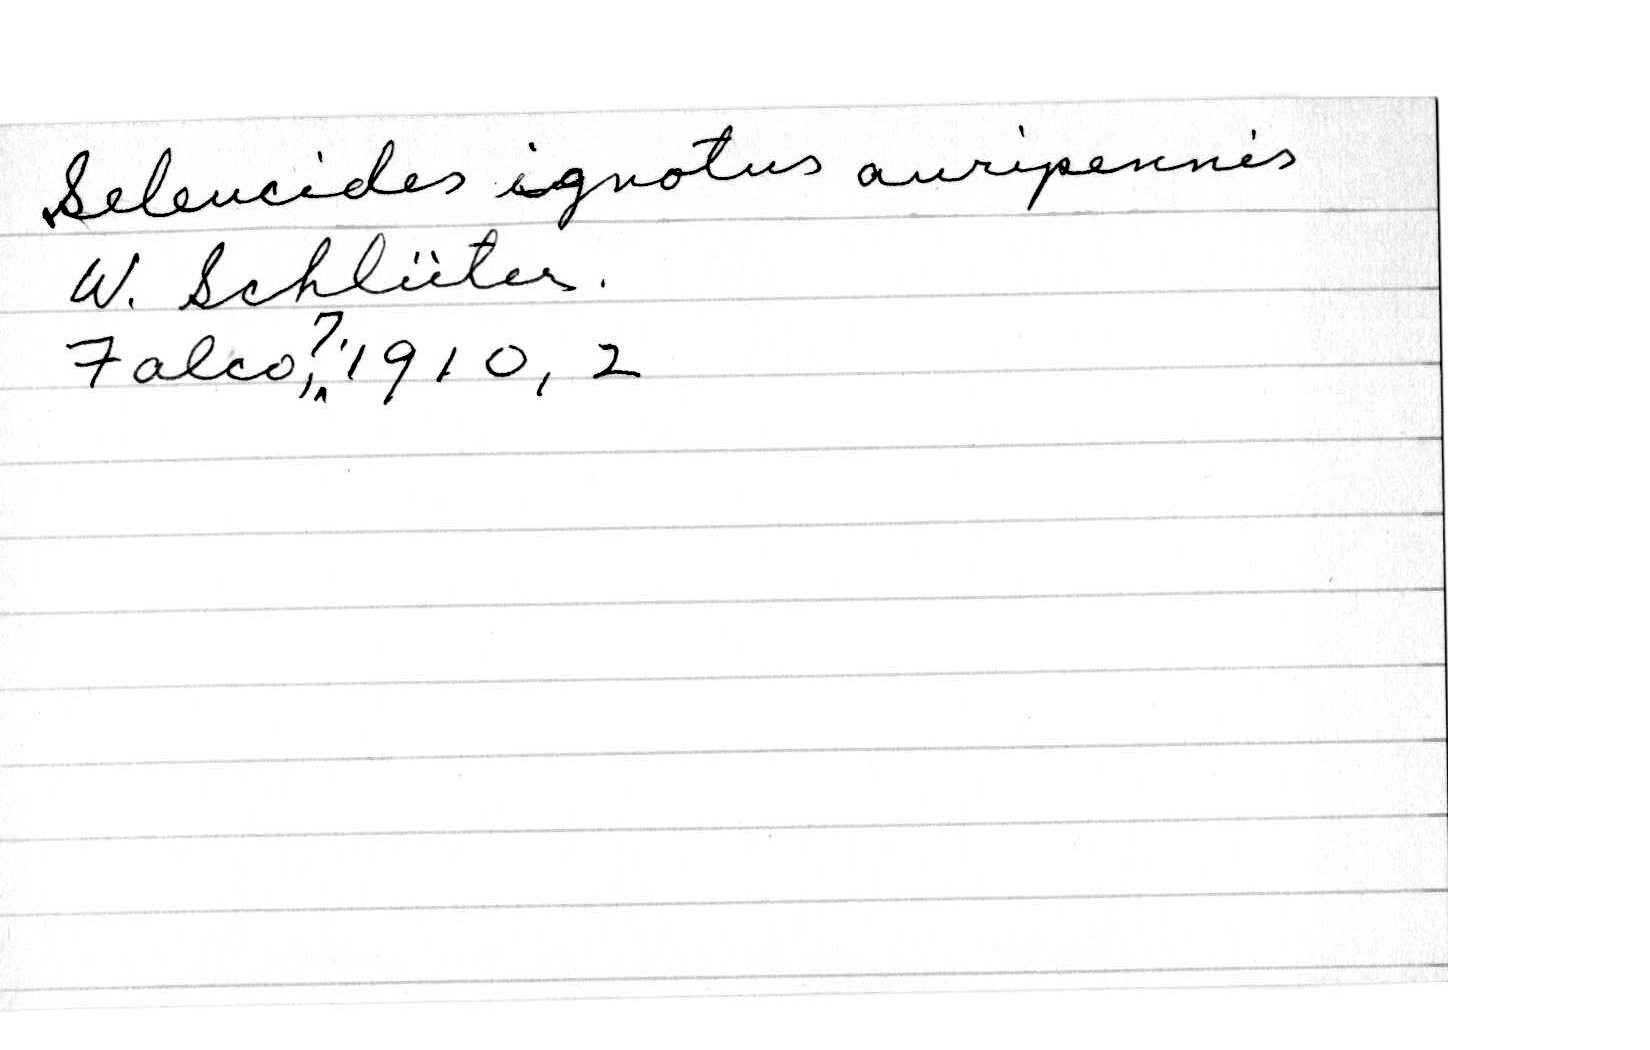 Seleucides ignotus auripennis
W. Schlüter.
Falco, 7, 1910, 2